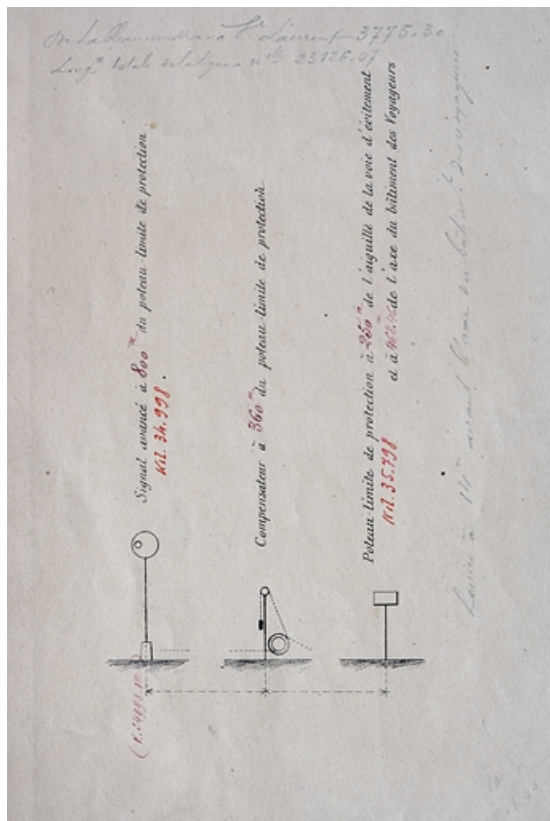 St Laurent 3775.30
Long.r totale de la ligne 23126.07
Signal avancé à 800m du poteau-limite de protection
Kil. 34.998
Compensateur à 360m du poteau-limite de protection
Poteau-limite de protection à 250m de l'aiguille de la voie d'évitement
et à de l'axe du bâtiment des Voyageurs
Kil. 35.798